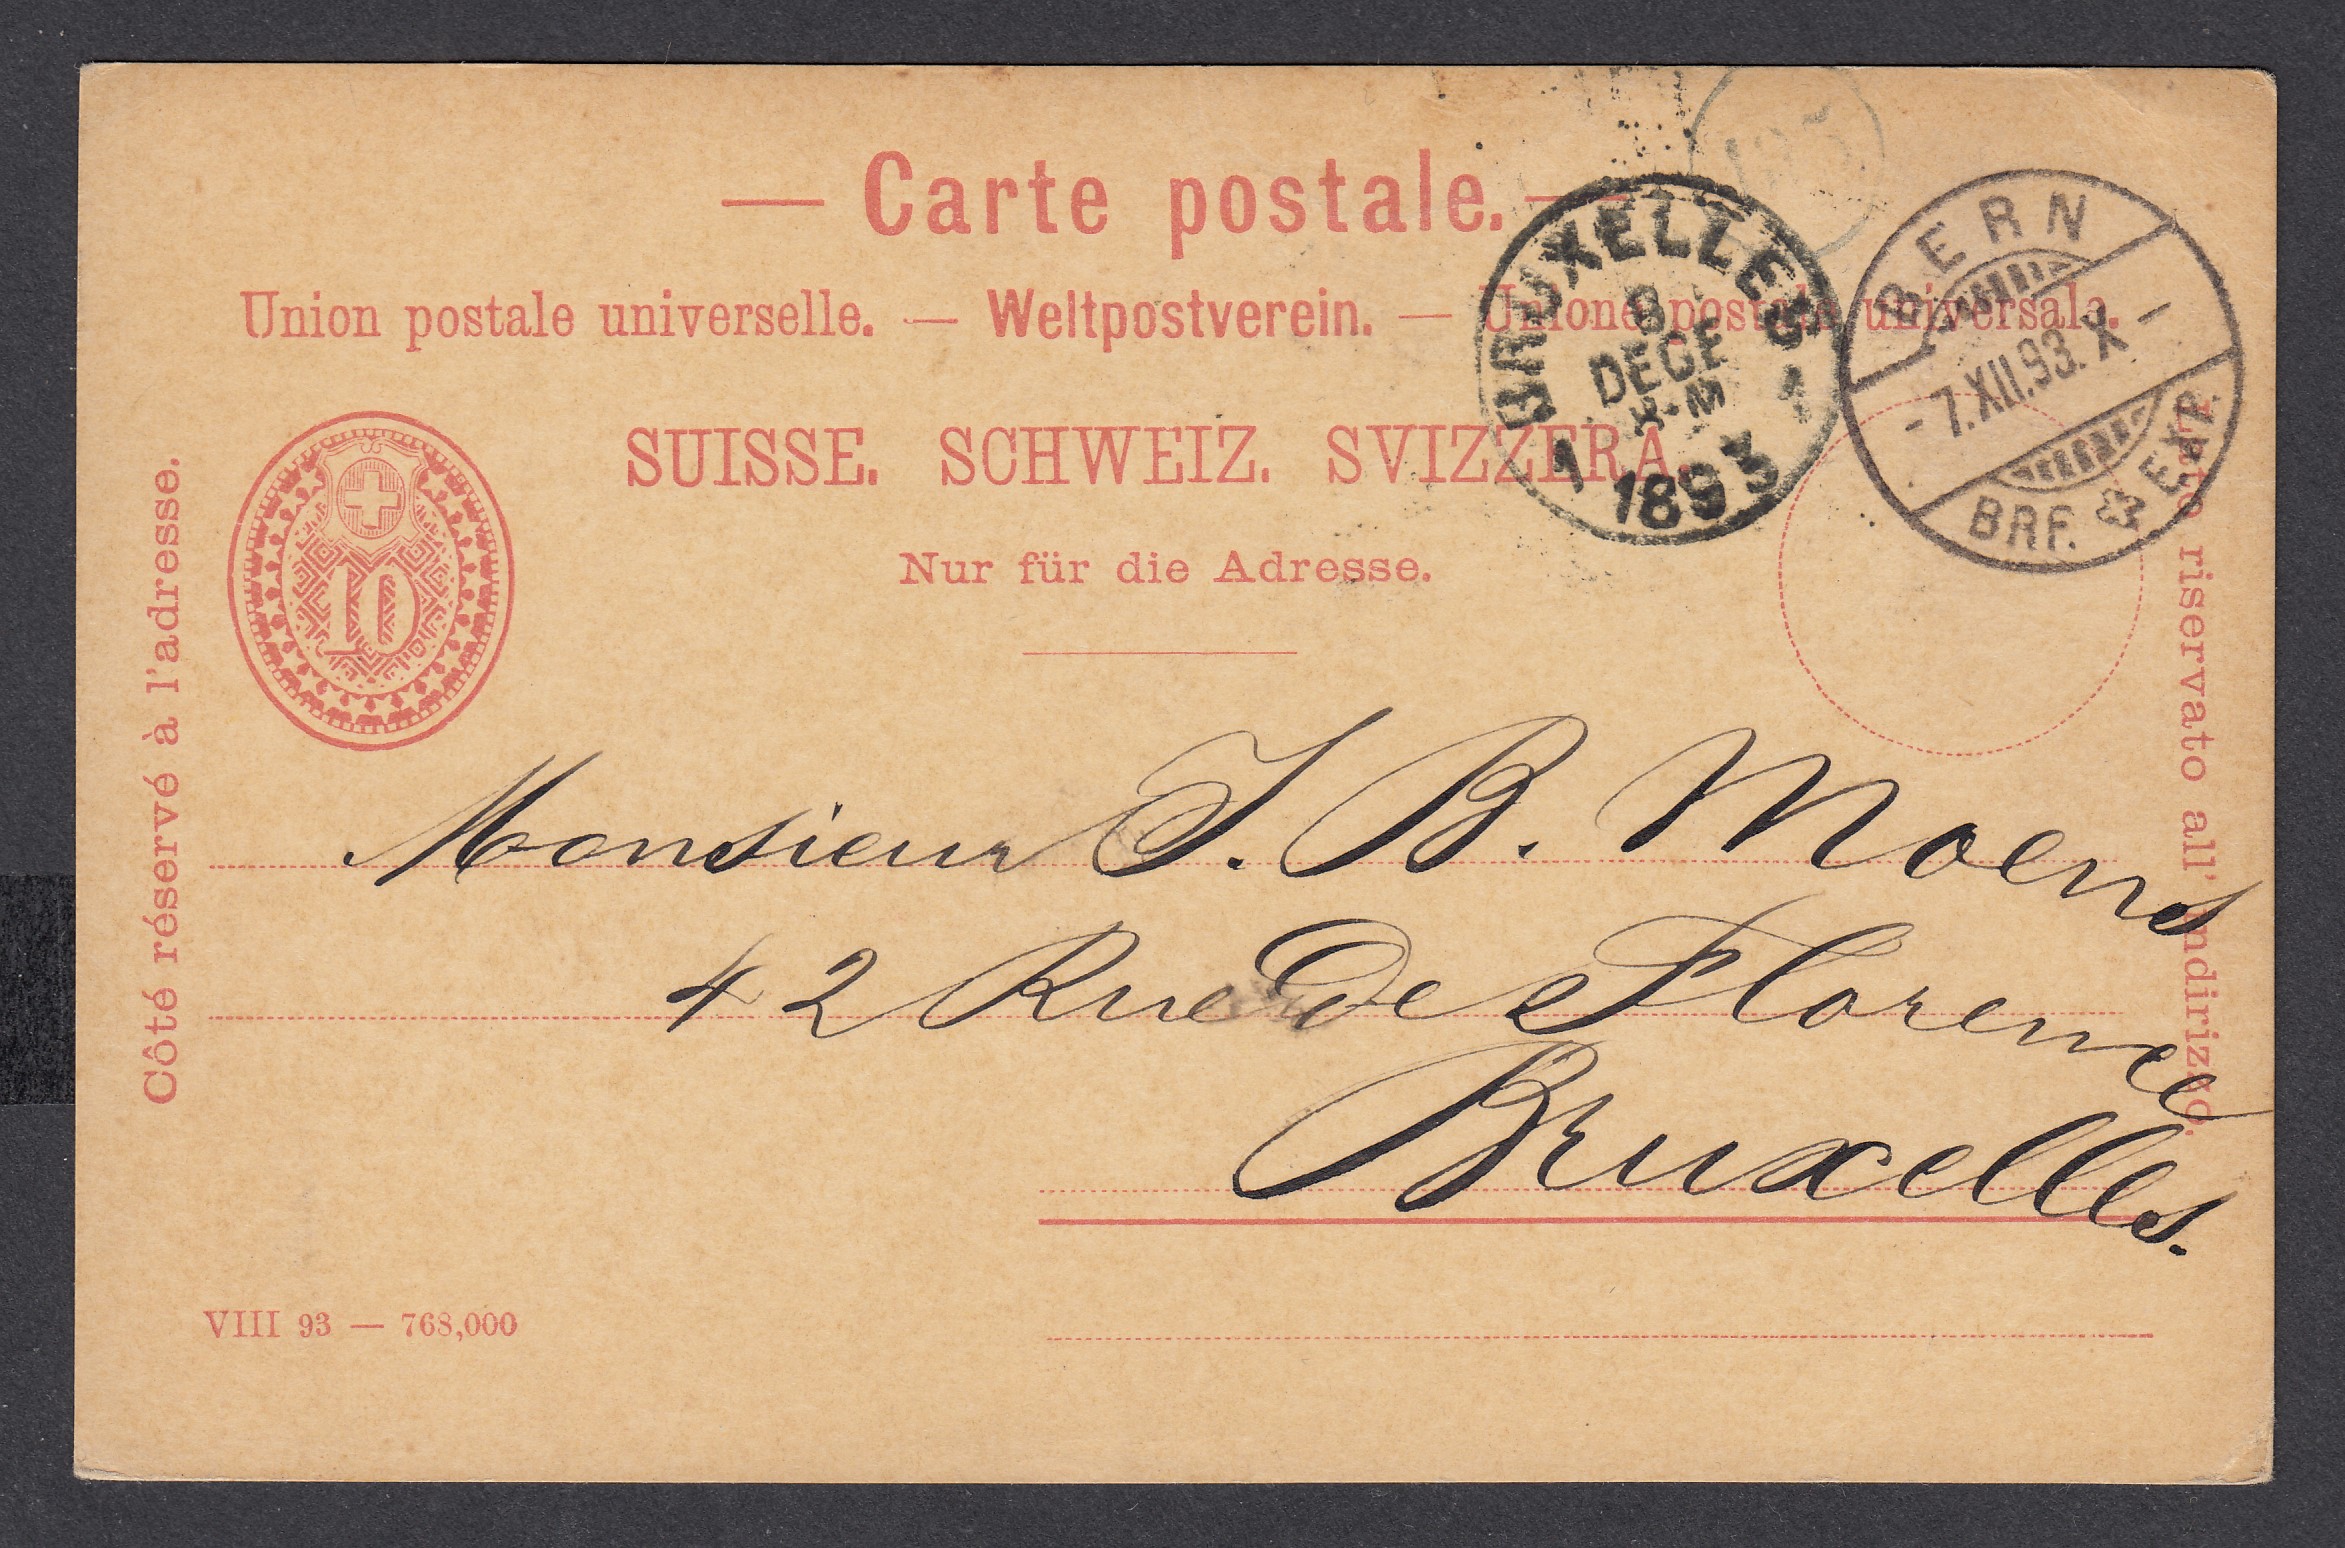 — Carte postale. —
Union postale universelle. — Weltpostverein. — Unione postale universale.
SUISSE. SCHWEIZ. SVIZZERA.
Nur für die Adresse.
Côté réservé à l'adresse.
Lato riservato all' indirizzo.
10
125
BRUXELLES
8
DECE
X-M
1 1
1893
BERN
-7.XII.93.X-
BRF. EXP.
Monsieur J. B. Moens
42 Rue de Florence
Bruxelles.
VIII 93 — 768,000